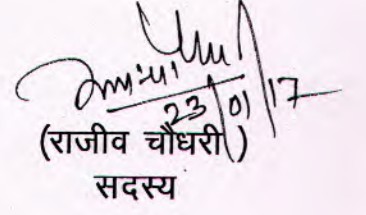 23/01/17
(राजीव चौधरी)
सदस्य